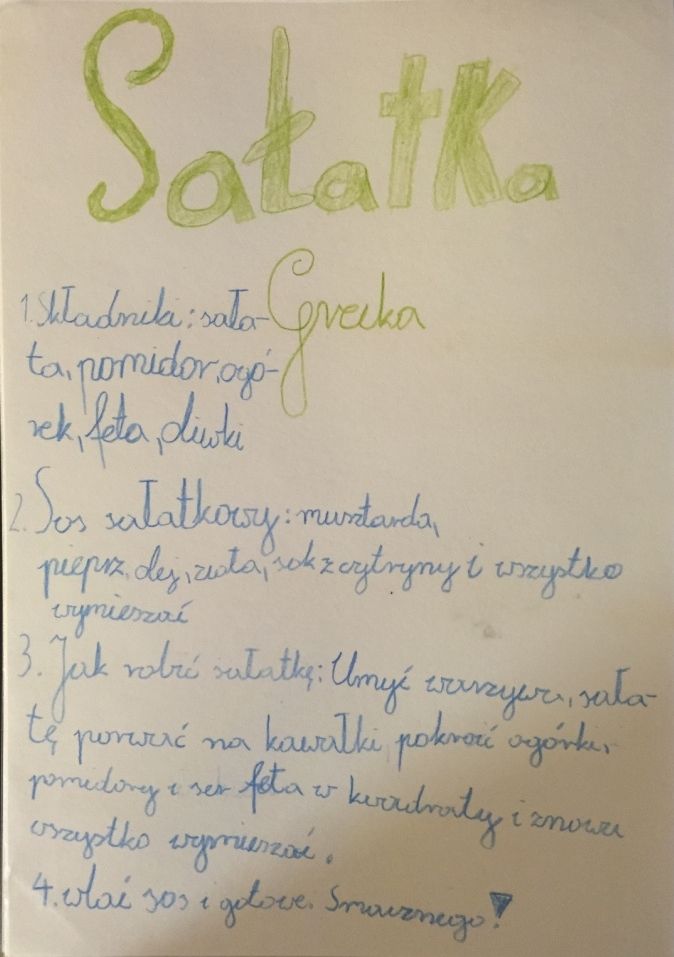 Sałatka
Grecka
1. Składniki: sała-
ta, pomidor, ogó-
rek, feta, oliwki
2. Sos sałatkowy: musztarda,
pieprz, olej, zioła, sok z cytryny i wszystko
wymieszać
3. Jak robić sałatkę: Umyć warzywa, sała-
tę porwać na kawałki, pokroić ogórki,
pomidory i ser feta w kwadraty i znowu
wszystko wymieszać.
4. wlać sos i gotowe. Smacznego!